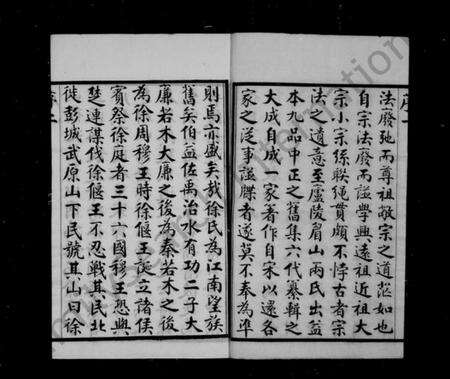 序一
法廢弛而尊祖敬宗之道茫如也
自宗法廢而譜學興遠祖近祖大
宗小宗絲聯繩貫頗不悖古者宗
法之遺意至廬陵眉山兩氏出益
本九品中正之舊集六代纂輯之
大成自成一家者作自宋以還各
家之從事譜牒者遂莫不奉為準
則焉亦盛矣哉徐氏為江南望族
舊矣伯益佐禹治水有功二子大
廉若木大廉之後為秦若木之後
為徐周穆王時徐偃王誕立諸侯
賓祭徐庭者三十六國穆王恐與
楚連謀伐徐偃王不忍戰其民北
徙彭城武原山下民號其山曰徐